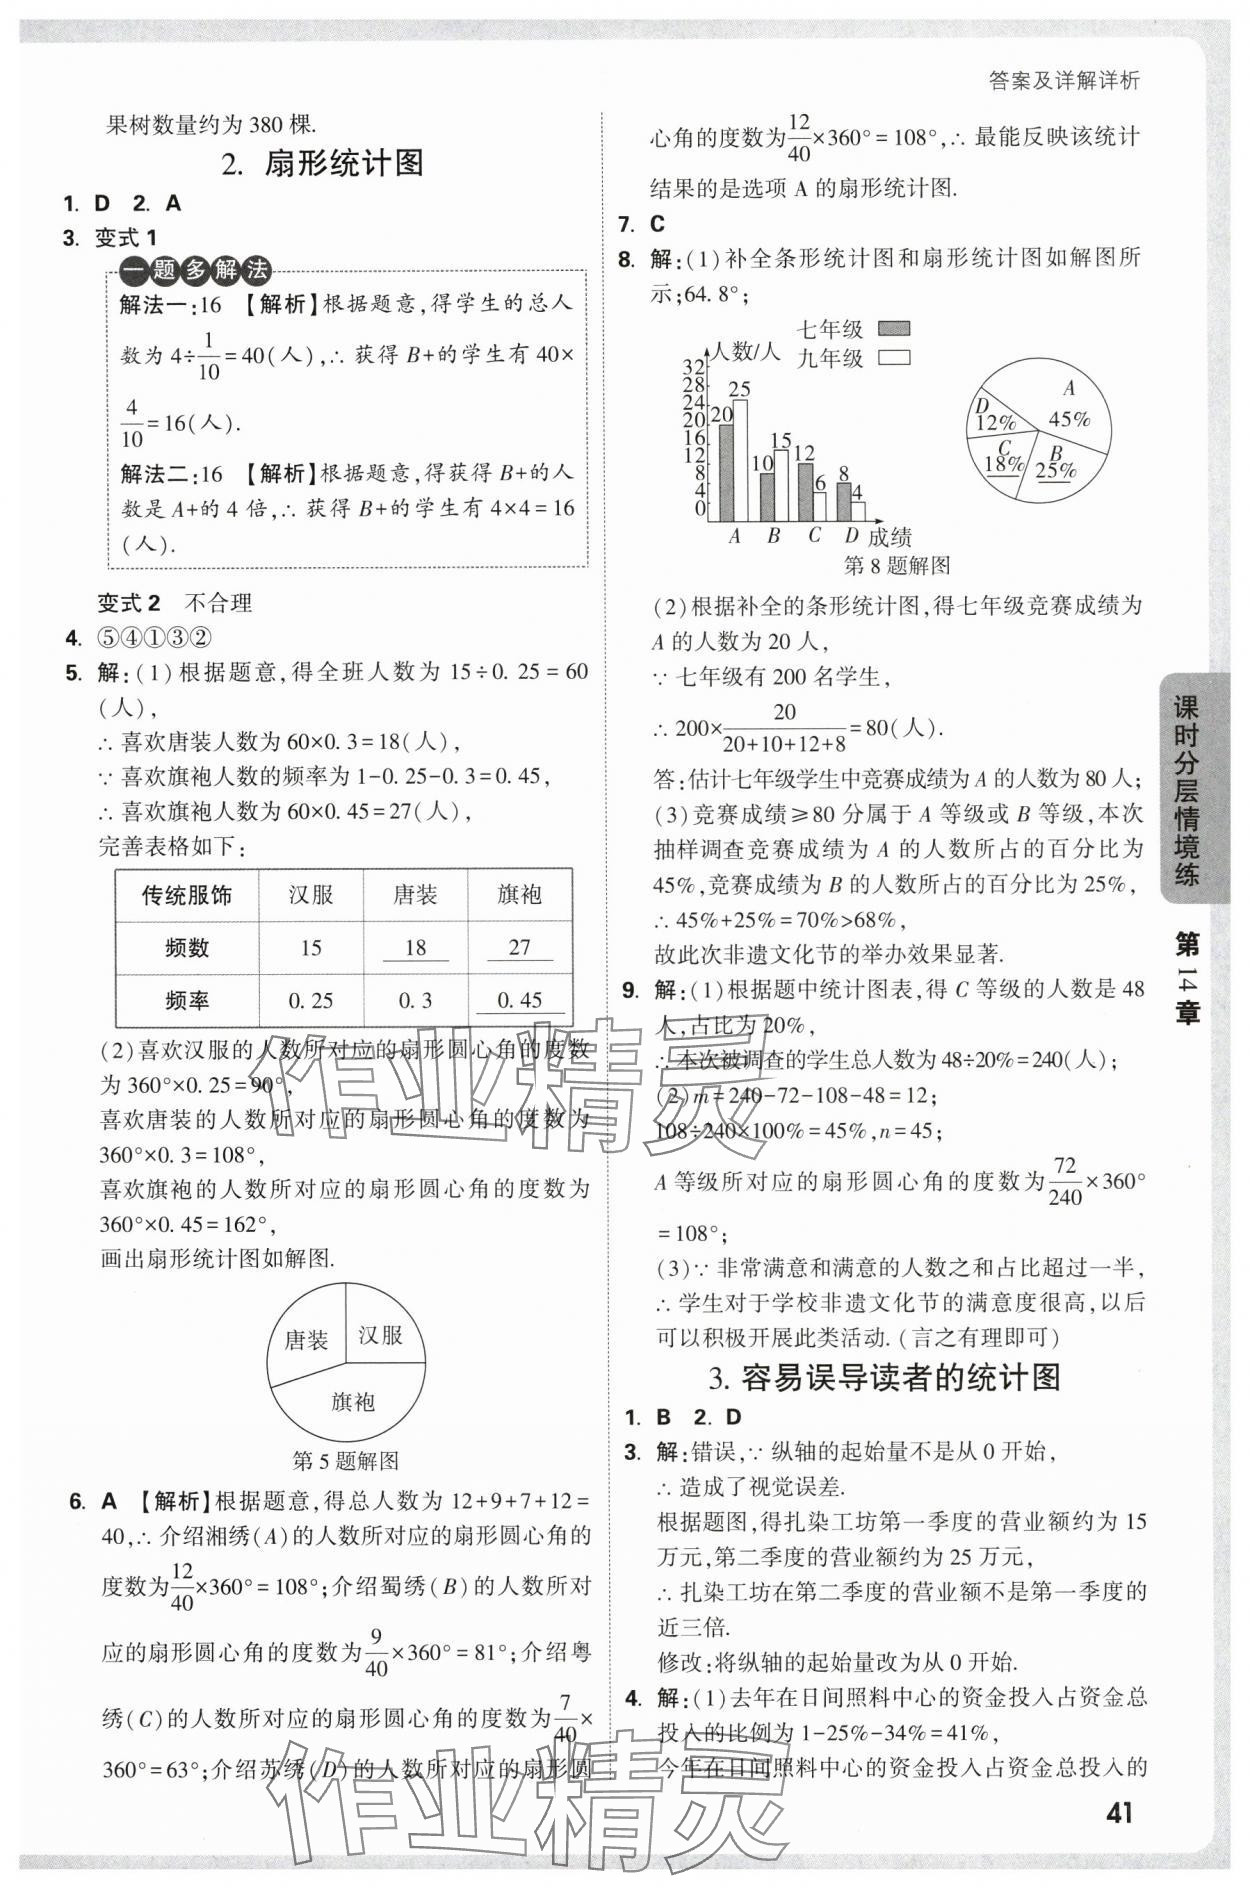 答案及详解详析
果树数量约为 380 棵.
2. 扇形统计图
1. D 2. A
3. 变式 1
一题多解法
解法一:16 【解析】根据题意,得学生的总人
数为 4÷1/10=40(人),∴ 获得 B+的学生有 40×
4/10=16(人).
解法二:16 【解析】根据题意,得获得 B+的人
数是 A+的 4 倍,∴ 获得 B+的学生有 4×4=16
(人).
变式 2 不合理
4. ⑤④①③②
5. 解:(1)根据题意,得全班人数为 15÷0.25=60
(人),
∴ 喜欢唐装人数为 60×0.3=18(人),
∵ 喜欢旗袍人数的频率为 1-0.25-0.3=0.45,
∴ 喜欢旗袍人数为 60×0.45=27(人),
完善表格如下:
传统服饰 汉服 唐装 旗袍
频数 15 18 27
频率 0.25 0.3 0.45
(2)喜欢汉服的人数所对应的扇形圆心角的度数
为 360°×0.25=90°,
喜欢唐装的人数所对应的扇形圆心角的度数为
360°×0.3=108°,
喜欢旗袍的人数所对应的扇形圆心角的度数为
360°×0.45=162°,
画出扇形统计图如解图.
唐装 汉服
旗袍
第 5 题解图
6. A 【解析】根据题意,得总人数为 12+9+7+12=
40,∴ 介绍湘绣(A)的人数所对应的扇形圆心角的
度数为12/40×360°=108°;介绍蜀绣(B)的人数所对
应的扇形圆心角的度数为9/40×360°=81°;介绍粤
绣(C)的人数所对应的扇形圆心角的度数为7/40×
360°=63°;介绍苏绣(D)的人数所对应的扇形圆
心角的度数为12/40×360°=108°,∴ 最能反映该统计
结果的是选项 A 的扇形统计图.
7. C
8. 解:(1)补全条形统计图和扇形统计图如解图所
示;64.8°;
七年级
九年级
人数/人
32
28
24
20
16
12
8
4
0
20 25 10 15 12 6 8 4
A B C D 成绩
A
45%
D
12%
C
18%
B
25%
第 8 题解图
(2)根据补全的条形统计图,得七年级竞赛成绩为
A 的人数为 20 人,
∵ 七年级有 200 名学生,
∴ 200×20/(20+10+12+8)=80(人).
答:估计七年级学生中竞赛成绩为 A 的人数为 80 人;
(3)竞赛成绩≥80 分属于 A 等级或 B 等级,本次
抽样调查竞赛成绩为 A 的人数所占的百分比为
45%,竞赛成绩为 B 的人数所占的百分比为 25%,
∴ 45%+25%=70%>68%,
故此次非遗文化节的举办效果显著.
9. 解:(1)根据题中统计图表,得 C 等级的人数是 48
人,占比为 20%,
∴ 本次被调查的学生总人数为 48÷20%=240(人);
(2)m=240-72-108-48=12;
108÷240×100%=45%,n=45;
A 等级所对应的扇形圆心角的度数为72/240×360°
=108°;
(3)∵ 非常满意和满意的人数之和占比超过一半,
∴ 学生对于学校非遗文化节的满意度很高,以后
可以积极开展此类活动.(言之有理即可)
3. 容易误导读者的统计图
1. B 2. D
3. 解:错误,∵ 纵轴的起始量不是从 0 开始,
∴ 造成了视觉误差.
根据题图,得扎染工坊第一季度的营业额约为 15
万元,第二季度的营业额约为 25 万元,
∴ 扎染工坊在第二季度的营业额不是第一季度的
近三倍.
修改:将纵轴的起始量改为从 0 开始.
4. 解:(1)去年在日间照料中心的资金投入占资金总
投入的比例为 1-25%-34%=41%,
今年在日间照料中心的资金投入占资金总投入的
课时分层情境练
第14章
41
作业精灵
作业精灵